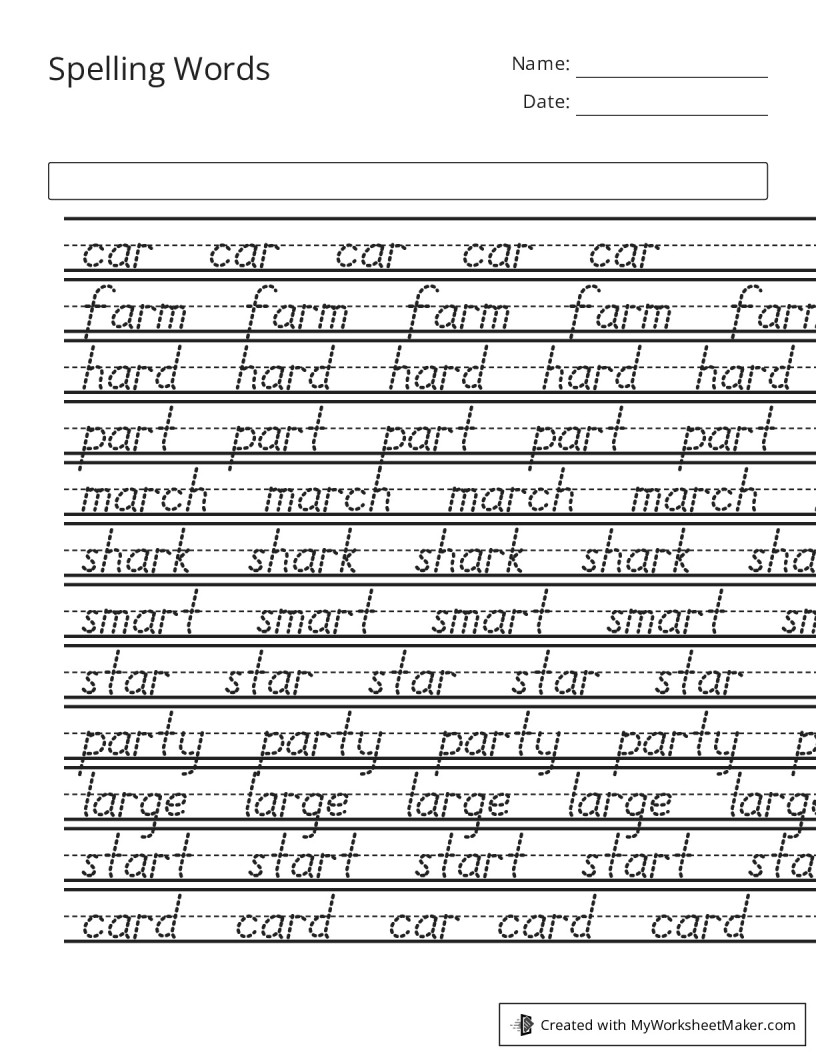 Spelling Words
Name:
Date:
car car car car car
farm farm farm farm farm
hard hard hard hard hard
part part part part part
march march march march
shark shark shark shark sha
smart smart smart smart sm
star star star star star
party party party party p
large large large large large
start start start start sta
card card car card card
Created with MyWorksheetMaker.com